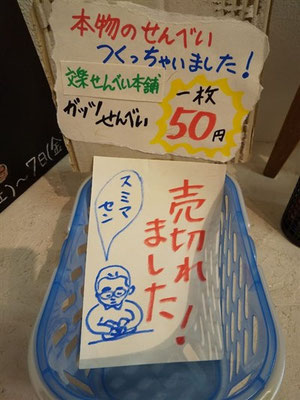 本物のせんべい
つくっちゃいました!
文楽せんべい本舗
ガッツせんべい
一枚
50円
~7日(金
スミマ
セン
売切れ
ました!